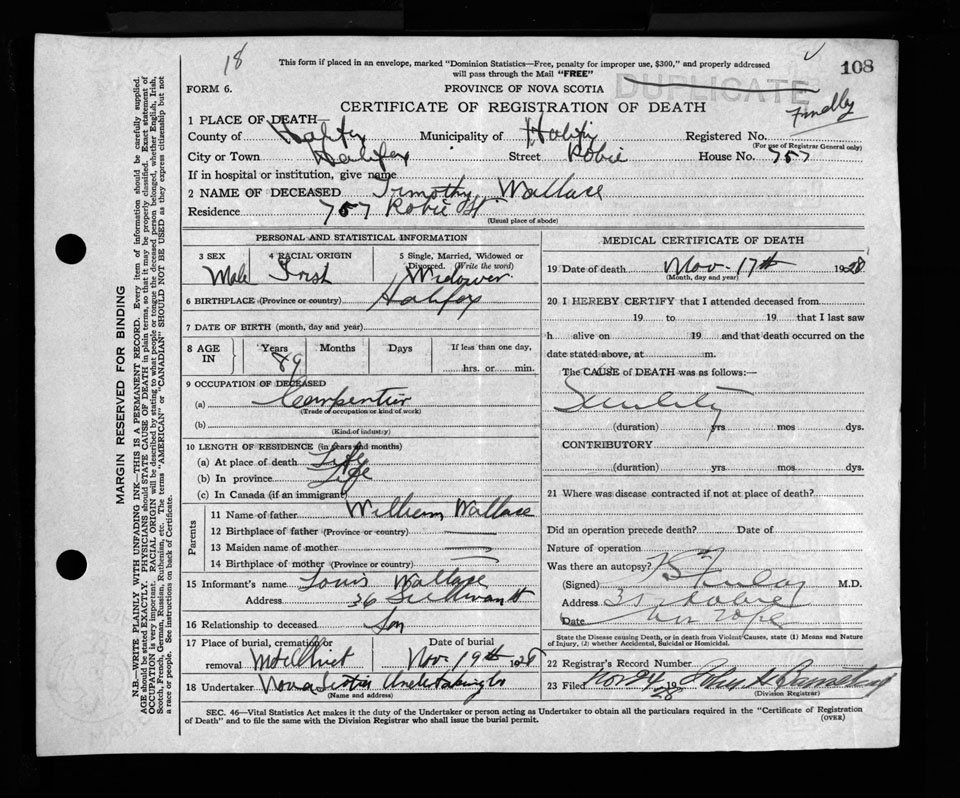 18
This form if placed in an envelope, marked "Dominion Statistics—Free, penalty for improper use, $300," and properly addressed
will pass through the Mail "FREE"
108
FORM 6.
PROVINCE OF NOVA SCOTIA
DUPLICATE
CERTIFICATE OF REGISTRATION OF DEATH
1 PLACE OF DEATH—
County of Halifax Municipality of Halifax Registered No.
(For use of Registrar General only)
City or Town Halifax Street Robie House No. 757
If in hospital or institution, give name
2 NAME OF DECEASED Timothy Wallace
Residence 757 Robie St
(Usual place of abode)
PERSONAL AND STATISTICAL INFORMATION
3 SEX Male
4 RACIAL ORIGIN Irish
5 Single, Married, Widowed or
Divorced. (Write the word)
Widower
6 BIRTHPLACE (Province or country) Halifax
7 DATE OF BIRTH (month, day and year)
8 AGE IN Years 89 Months Days If less than one day,
hrs. or min.
9 OCCUPATION OF DECEASED
(a) Carpenter
(Trade or occupation or kind of work)
(b)
(Kind of industry)
10 LENGTH OF RESIDENCE (in years and months)
(a) At place of death Life
(b) In province Life
(c) In Canada (if an immigrant)
Parents
11 Name of father William Wallace
12 Birthplace of father (Province or country)
13 Maiden name of mother
14 Birthplace of mother (Province or country)
15 Informant's name Louis Wallace
Address 36 Sullivan St
16 Relationship to deceased Son
17 Place of burial, cremation or
removal Mt Olivet
Date of burial
Nov. 19th 1928
18 Undertaker Nova Scotia Undertaking Co
(Name and address)
MEDICAL CERTIFICATE OF DEATH
19 Date of death Nov. 17th 1928
(Month, day and year)
20 I HEREBY CERTIFY that I attended deceased from
19 to 19 that I last saw
h alive on 19 and that death occurred on the
date stated above, at m.
The CAUSE of DEATH was as follows:—
Senility
(duration) yrs mos dys.
CONTRIBUTORY
(duration) yrs mos dys.
21 Where was disease contracted if not at place of death?
Did an operation precede death? Date of
Nature of operation
Was there an autopsy?
(Signed) M.D.
Address Robie
Date
State the Disease causing Death, or in death from Violent Causes, state (1) Means and Nature
of Injury, (2) whether Accidental, Suicidal or Homicidal.
22 Registrar's Record Number
23 Filed Nov 24 1928 John
(Division Registrar)
SEC. 46—Vital Statistics Act makes it the duty of the Undertaker or person acting as Undertaker to obtain all the particulars required in the "Certificate of Registration
of Death" and to file the same with the Division Registrar who shall issue the burial permit.
(OVER)
MARGIN RESERVED FOR BINDING
N.B.—WRITE PLAINLY WITH UNFADING INK—THIS IS A PERMANENT RECORD. Every item of information should be carefully supplied.
AGE should be stated EXACTLY. PHYSICIANS should STATE CAUSE OF DEATH in plain terms, so that it may be properly classified. Exact statement of
OCCUPATION is very important. RACIAL ORIGIN will be described by stating to what people or tongue the deceased person belonged, whether English, Irish,
Scotch, French, German, Russian, Ruthenian, etc. The terms "AMERICAN" or "CANADIAN" SHOULD NOT BE USED as they express citizenship but not
a race or people. See instructions on back of Certificate.